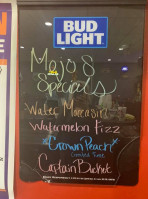 BUD
LIGHT
Mojo's
Specials
Water Moccasin
Watermelon Fizz
"Crown Peach"
Captain Bucket